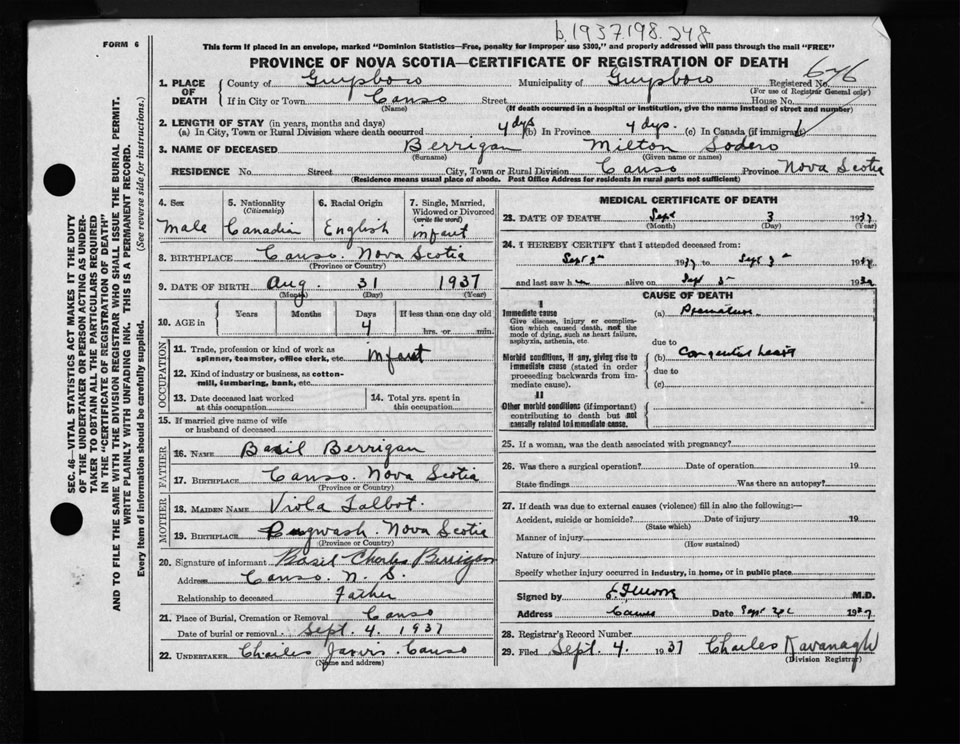 b.1937.198.248
FORM 6
This form if placed in an envelope, marked "Dominion Statistics—Free, penalty for improper use $300," and properly addressed will pass through the mail "FREE"
PROVINCE OF NOVA SCOTIA—CERTIFICATE OF REGISTRATION OF DEATH
SEC. 46—VITAL STATISTICS ACT MAKES IT THE DUTY
OF THE UNDERTAKER OR PERSON ACTING AS UNDER-
TAKER TO OBTAIN ALL THE PARTICULARS REQUIRED
IN THE "CERTIFICATE OF REGISTRATION OF DEATH"
AND TO FILE THE SAME WITH THE DIVISION REGISTRAR WHO SHALL ISSUE THE BURIAL PERMIT.
WRITE PLAINLY WITH UNFADING INK. THIS IS A PERMANENT RECORD.
Every item of information should be carefully supplied. (See reverse side for instructions.)
1. PLACE OF DEATH
County of Guysboro Municipality of Guysboro Registered No. 676
(For use of Registrar General only)
If in City or Town Canso Street House No.
(Name) (If death occurred in a hospital or institution, give the name instead of street and number)
2. LENGTH OF STAY (in years, months and days)
(a) In City, Town or Rural Division where death occurred 4 dys (b) In Province 4 dys. (c) In Canada (if immigrant)
3. NAME OF DECEASED Berrigan Milton Sodero
(Surname) (Given name or names)
RESIDENCE No. Street City, Town or Rural Division Canso Province Nova Scotia
(Residence means usual place of abode. Post Office Address for residents in rural parts not sufficient)
4. Sex
Male
5. Nationality
(Citizenship)
Canadian
6. Racial Origin
English
7. Single, Married,
Widowed or Divorced
(write the word)
infant
8. BIRTHPLACE Canso. Nova Scotia
(Province or Country)
9. DATE OF BIRTH Aug. 31 1937
(Month) (Day) (Year)
10. AGE in
Years Months Days If less than one day old
4 hrs. or min.
OCCUPATION
11. Trade, profession or kind of work as
spinner, teamster, office clerk, etc. Infant
12. Kind of industry or business, as cotton-
mill, lumbering, bank, etc.
13. Date deceased last worked
at this occupation
14. Total yrs. spent in
this occupation
15. If married give name of wife
or husband of deceased
FATHER
16. NAME Basil Berrigan
17. BIRTHPLACE Canso. Nova Scotia
(Province or Country)
MOTHER
18. MAIDEN NAME Viola Talbot.
19. BIRTHPLACE Pugwash. Nova Scotia
(Province or Country)
20. Signature of informant Basil Charles Berrigan
Address Canso. N. S.
Relationship to deceased Father
21. Place of Burial, Cremation or Removal Canso
Date of burial or removal Sept. 4. 1937
22. UNDERTAKER Charles Jarvis. Canso
(Name and address)
MEDICAL CERTIFICATE OF DEATH
23. DATE OF DEATH Sept 3 1937
(Month) (Day) (Year)
24. I HEREBY CERTIFY that I attended deceased from:
Sept 1937 to Sept 3 1937
and last saw h alive on Sept 193
CAUSE OF DEATH
I
Immediate cause
Give disease, injury or complica-
tion which caused death, not the
mode of dying, such as heart failure,
asphyxia, asthenia, etc.
(a) Premature.
due to
Morbid conditions, if any, giving rise to
immediate cause (stated in order
proceeding backwards from im-
mediate cause).
(b) Congenital heart
due to
(c)
II
Other morbid conditions (if important)
contributing to death but not
causally related to immediate cause.
25. If a woman, was the death associated with pregnancy?
26. Was there a surgical operation? Date of operation 19
State findings Was there an autopsy?
27. If death was due to external causes (violence) fill in also the following:—
Accident, suicide or homicide? Date of injury 19
(State which)
Manner of injury
(How sustained)
Nature of injury
Specify whether injury occurred in industry, in home, or in public place
Signed by M.D.
Address Canso Date Sept 1937
28. Registrar's Record Number
29. Filed Sept. 4 1937 Charles Kavanagh
(Division Registrar)